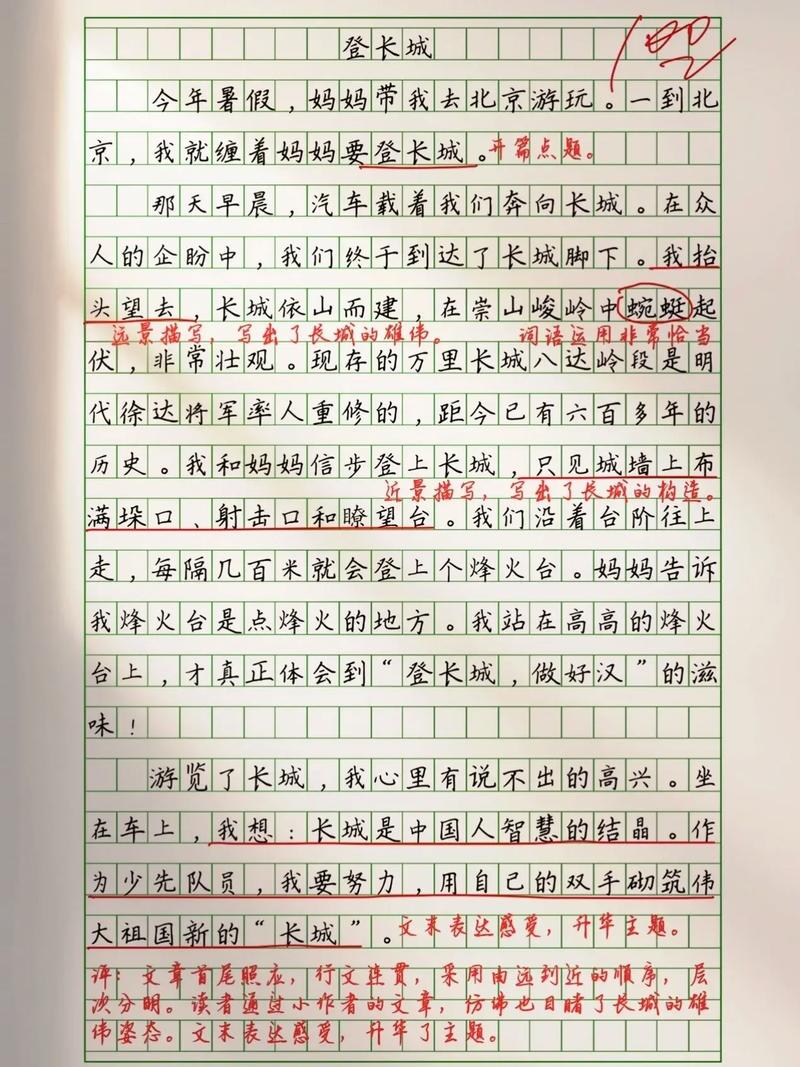 登长城
今年暑假，妈妈带我去北京游玩。一到北
京，我就缠着妈妈要登长城。开篇点题。
那天早晨，汽车载着我们奔向长城。在众
人的企盼中，我们终于到达了长城脚下。我抬
头望去，长城依山而建，在崇山峻岭中蜿蜒起
远景描写，写出了长城的雄伟。 词语运用非常恰当
伏，非常壮观。现存的万里长城八达岭段是明
代徐达将军率人重修的，距今已有六百多年的
历史。我和妈妈信步登上长城，只见城墙上布
近景描写，写出了长城的构造。
满垛口、射击口和瞭望台。我们沿着台阶往上
走，每隔几百米就会登上个烽火台。妈妈告诉
我烽火台是点烽火的地方。我站在高高的烽火
台上，才真正体会到“登长城，做好汉”的滋
味！
游览了长城，我心里有说不出的高兴。坐
在车上，我想：长城是中国人智慧的结晶。作
为少先队员，我要努力，用自己的双手砌筑伟
大祖国新的“长城”。文末表达感受，升华主题。
评：文章首尾照应，行文连贯，采用由远到近的顺序，层
次分明。读者通过小作者的文章，仿佛也目睹了长城的雄
伟姿态。文末表达感受，升华了主题。